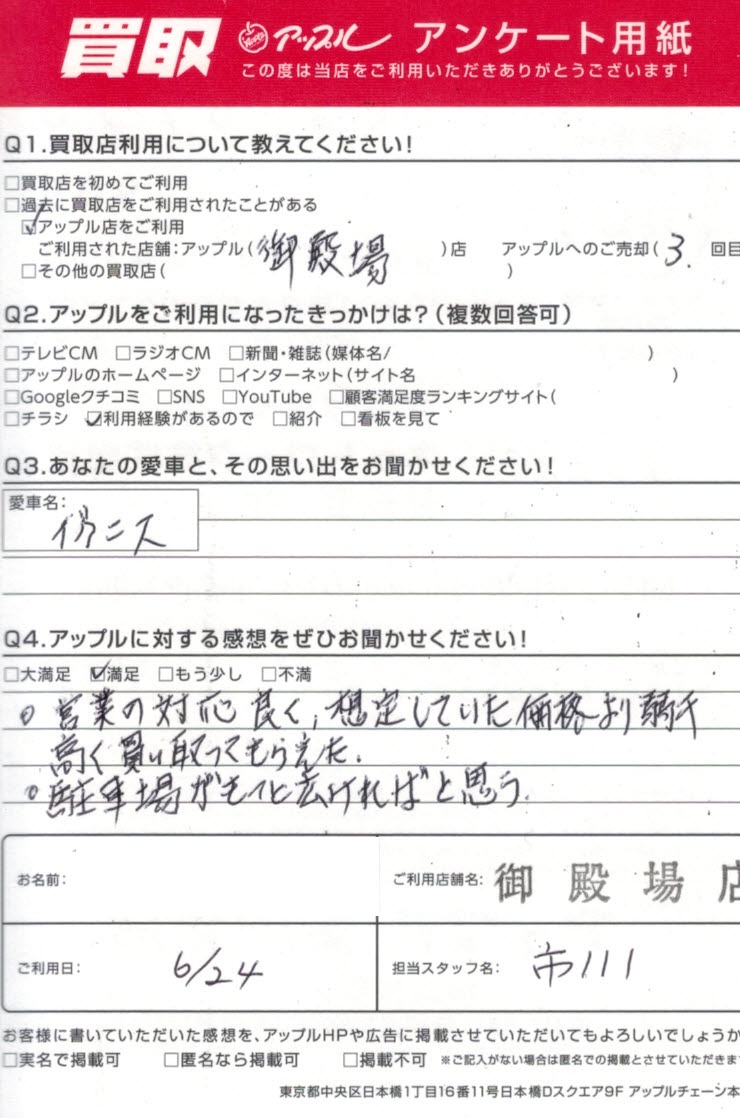 買取 アップル アンケート用紙
この度は当店をご利用いただきありがとうございます!
Q1.買取店利用について教えてください!
□買取店を初めてご利用
□過去に買取店をご利用されたことがある
☑アップル店をご利用
ご利用された店舗:アップル(御殿場)店 アップルへのご売却(3. 回目
□その他の買取店( )
Q2.アップルをご利用になったきっかけは?(複数回答可)
□テレビCM □ラジオCM □新聞・雑誌(媒体名/ )
□アップルのホームページ □インターネット(サイト名 )
□Googleクチコミ □SNS □YouTube □顧客満足度ランキングサイト(
□チラシ ☑利用経験があるので □紹介 □看板を見て
Q3.あなたの愛車と、その思い出をお聞かせください!
愛車名:
イグニス
Q4.アップルに対する感想をぜひお聞かせください!
□大満足 ☑満足 □もう少し □不満
○営業の対応良く、想定していた価格より若干
高く買い取ってもらえた.
○駐車場がもっと広ければと思う.
お名前: ご利用店舗名: 御殿場店
ご利用日: 6/24 担当スタッフ名: 市川
お客様に書いていただいた感想を、アップルHPや広告に掲載させていただいてもよろしいでしょうか
□実名で掲載可 □匿名なら掲載可 □掲載不可 ※ご記入がない場合は匿名での掲載とさせていただきま
東京都中央区日本橋1丁目16番11号日本橋Dスクエア9F アップルチェーン本